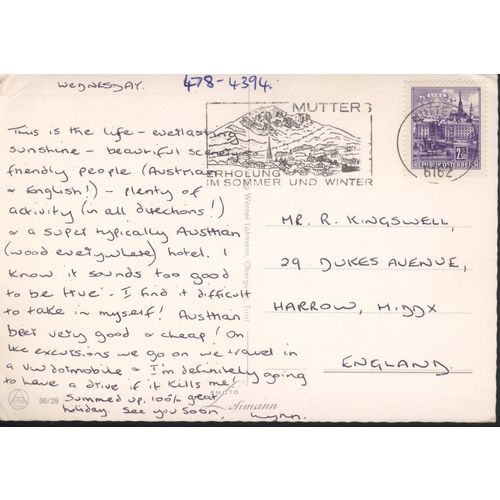 WEDNESDAY.
478-4394.
This is the life - everlasting
sunshine - beautiful scenery
friendly people (Austrian
& English!) - plenty of
activity (in all directions!)
& a super typically Austrian
(wood everywhere) hotel. I
know it sounds too good
to be true - I find it difficult
to take in myself! Austrian
beer very good & cheap! On
the excursions we go on we travel in
a VW dormobile & I'm definitely going
to have a drive if it kills me!
Summed up, 100% great
holiday. See you soon,
Lynn.
MUTTERS
ERHOLUNG
IM SOMMER UND WINTER
MUTTERS
6162
2.50
REPUBLIK ÖSTERREICH
MR. R. KINGSWELL,
29 DUKES AVENUE,
HARROW, MIDDX
ENGLAND.
Werner Lohmann, Obergurgl, Tirol
00/29
PHOTO
Lohmann